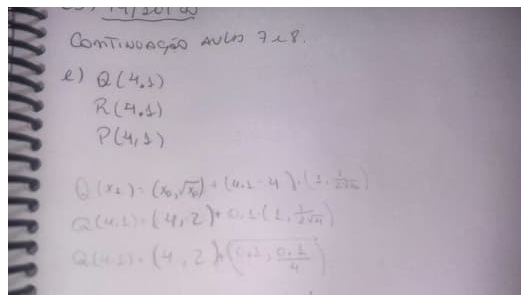 14/10/
CONTINUAÇÃO AULAS 7 e 8.
e) Q(4.1)
R(4.1)
P(4,1)
Q(x1) = (x0, √x0) + (4.1 - 4) · (1, 1/2√x0)
Q(4.1) = (4, 2) + 0.1 (1, 1/2√4)
Q(4.1) = (4, 2) + (0.1, 0.1/4)